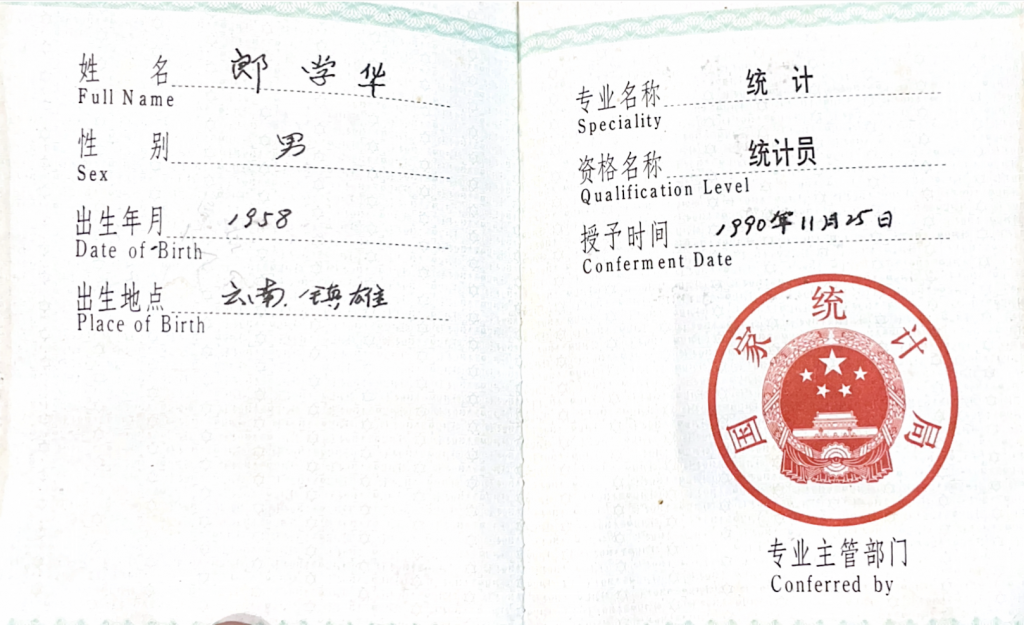 姓 名 郎学华
Full Name
性 别 男
Sex
出生年月 1958
Date of Birth
出生地点 云南.镇雄
Place of Birth
专业名称 统 计
Speciality
资格名称 统计员
Qualification Level
授予时间 1990年11月25日
Conferment Date
国家统计局
专业主管部门
Conferred by